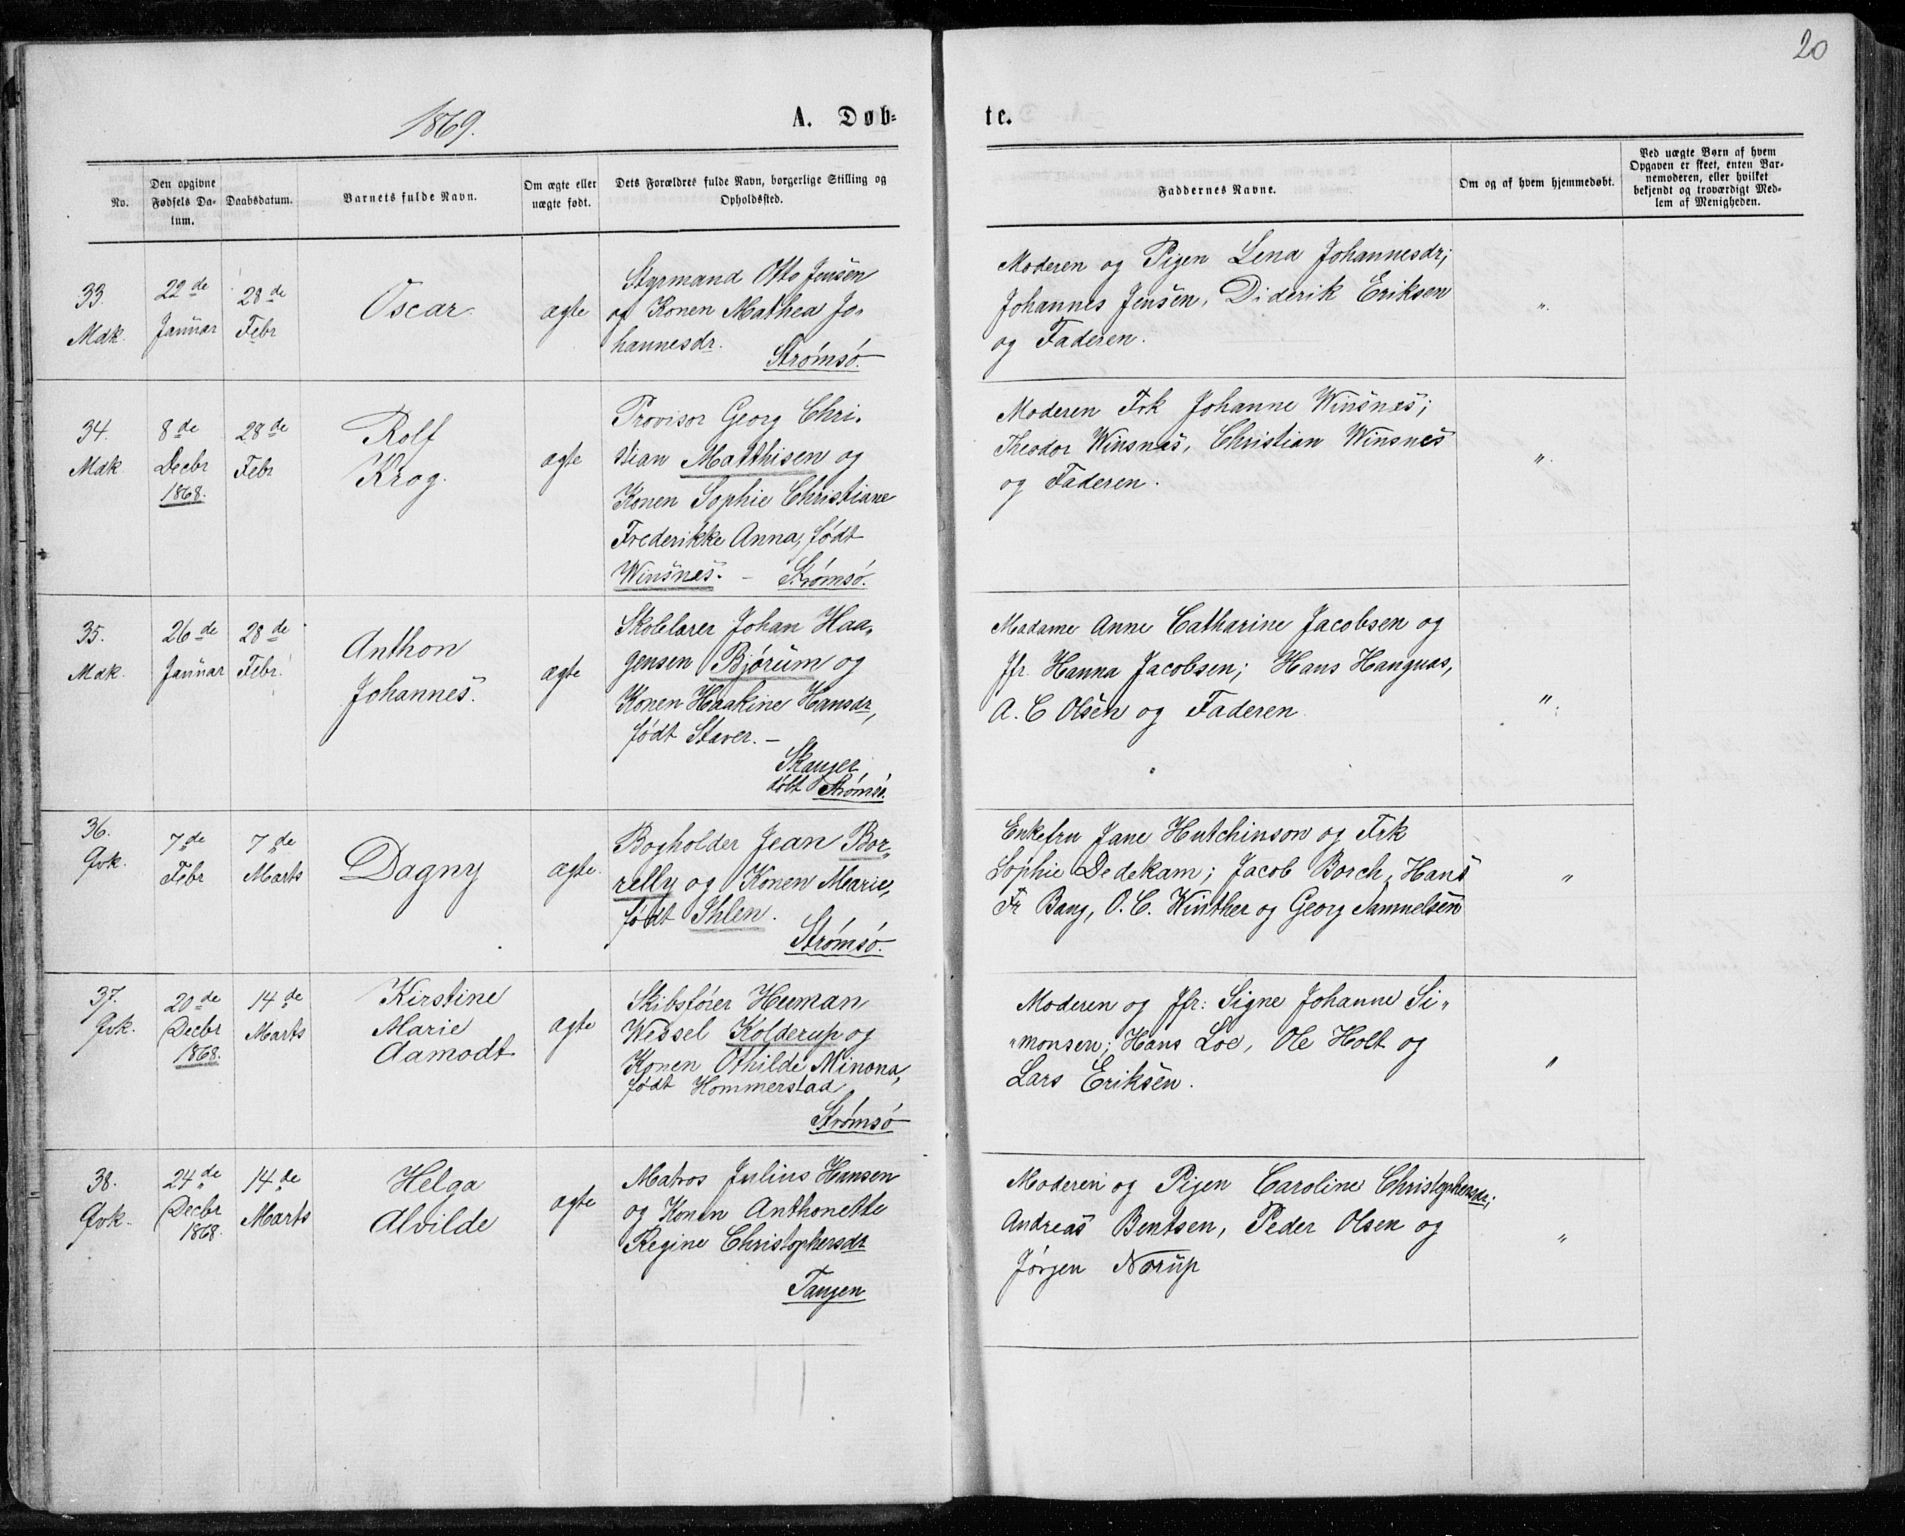 20
1869.
A. Døb-
te.
No.
Den opgivne
Fødsels Da-
tum.
Daabsdatum.
Barnets fulde Navn.
Om ægte eller
uægte født.
Dets Forældres fulde Navn, borgerlige Stilling og
Opholdssted.
Faddernes Navne.
Om og af hvem hjemmedøbt.
Ved uægte Børn af hvem
Opgaven er skeet, enten Bar-
nemoderen, eller hvilket
bekjendt og troværdigt Med-
lem af Menigheden.
33.
Mdk.
22de
Januar
28de
Febr
Oscar
ægte
Styrmand Otto Jensen
og Konen Mathea Jo-
hannesdr.
Strømsø.
Moderen og Pigen Lena Johannesdr;
Johannes Jensen, Diderik Eriksen
og Faderen.
"
34.
Mdk
8de
Decbr
1868.
28de
Febr
Rolf
Krog.
ægte
Provisor Georg Chri-
stian Matthisen og
Konen Sophie Christiane
Frederikke Anna, født
Winsnes. - Strømsø.
Moderen Frk Johanne Winsnes;
Theodor Winsnes, Christian Winsnes
og Faderen.
"
35.
Mdk.
26de
Januar
28de
Febr.
Anthon
Johannes.
ægte
Skolelærer Johan Haa-
gensen Bjørum og
Konen Haakine Hansdr,
født Staver. -
Skauger
døbt Strømsø.
Madame Anne Catharine Jacobsen og
Jfr. Hanna Jacobsen; Hans Hangaas,
A. C Olsen og Faderen
"
36.
Qvk.
7de
Febr
7de
Marts
Dagny
ægte.
Bogholder Jean Bor-
relly og Konen Marie,
født Ihlen.
Strømsø.
Enkefru Jane Hutchinson og Frk
Sophie Dedekam; Jacob Borch, Hans
Fr Bang, O. C. Winther og Georg Samuelsen
"
37.
Qvk.
20de
Decbr
1868.
14de
Marts
Kirstine
Marie
Aamodt
ægte
Skibsfører Herman
Wessel Kolderup og
Konen Othilde Minona,
født Hommerstad
Strømsø
Moderen og Jfr: Signe Johanne Si-
monsen; Hans Loe, Ole Holt og
Lars Eriksen.
"
38.
Qvk.
24de
Decbr
1868.
14de
Marts
Helga
Alvilde
ægte
Matros Julius Hansen
og Konen Anthonette
Regine Christophersdr
Tangen
Moderen og Pigen Caroline Christophersdr;
Andreas Bentsen, Peder Olsen og
Jørgen Norup
"